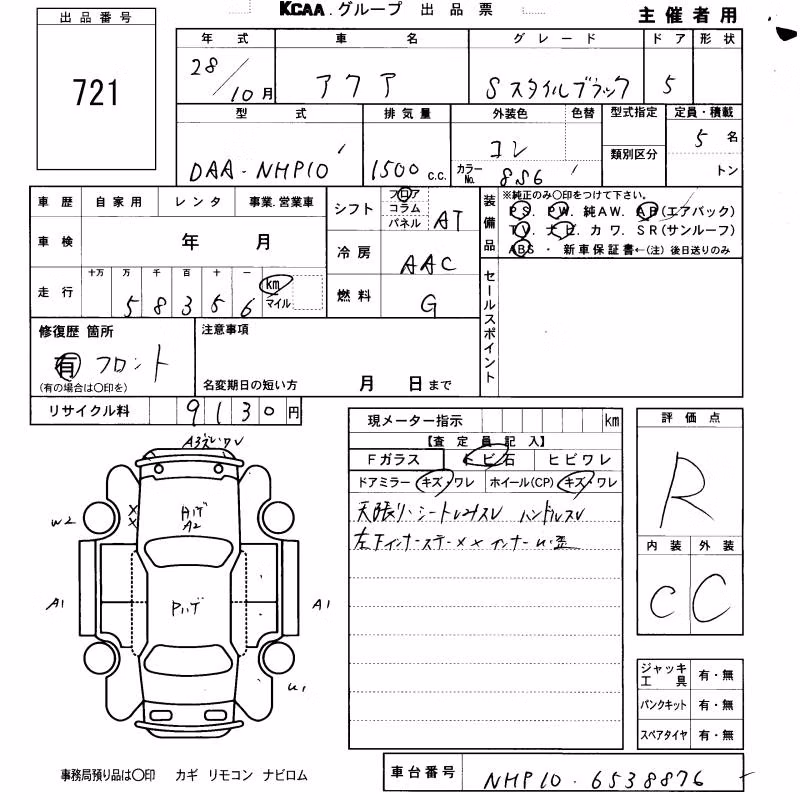 KCAA.グループ 出品票
主催者用
出品番号
721
年式 車名 グレード ドア 形状
28/10月 アクア Sスタイルブラック 5
型式 排気量 外装色 色替 型式指定 定員・積載
DAA-NHP10 1500c.c. コン カラーNo. 856 類別区分 5名
トン
車歴 自家用 レンタ 事業.営業車
シフト フロア コラム パネル AT
装備品 ※純正のみ○印をつけて下さい。
PS. PW. 純AW. AB(エアバック)
TV. ナビ. カワ. SR(サンルーフ)
ABS・新車保証書←(注)後日送りのみ
車検 年 月
冷房 AAC
走行 十万 万 千 百 十 一
58356 km マイル
燃料 G
セールスポイント
修復歴 箇所
有 フロント
(有の場合は○印を)
注意事項
名変期日の短い方 月 日まで
リサイクル料 9130円
現メーター指示 km
【査定員記入】
Fガラス トビ石 ヒビワレ
ドアミラー キズ・ワレ ホイール(CP) キズ・ワレ
天張り・シートレスレ ハンドルスレ
左下インナーステー××インナー
評価点
R
内装 外装
C C
W2
A2
A1
Pハゲ
A1
U1
ジャッキ工具 有・無
パンクキット 有・無
スペアタイヤ 有・無
事務局預り品は○印 カギ リモコン ナビロム
車台番号 NHP10-6538876